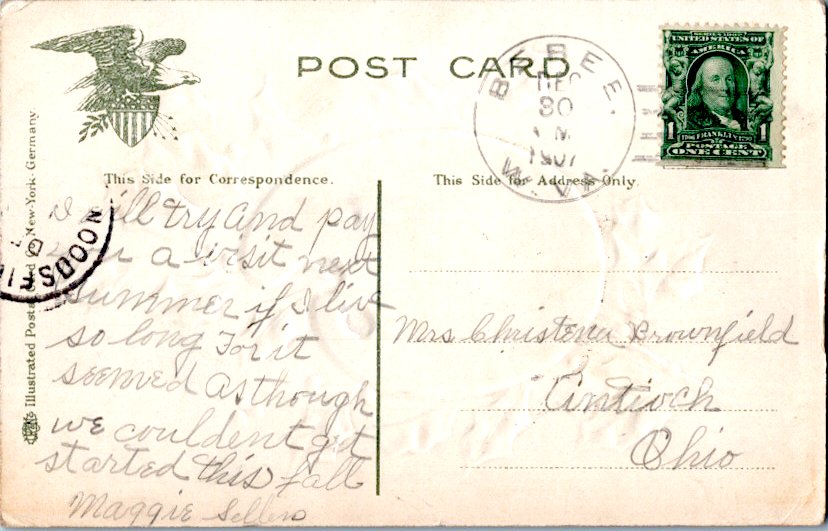 POST CARD
BYBEE.
DEC
30
M
1907
W. VA.
SERIES 1902
UNITED STATES OF
AMERICA
1 FRANKLIN 1
POSTAGE
ONE CENT
This Side for Correspondence.
This Side for Address Only.
Illustrated Postal Card Co. New-York-Germany.
WOODSFI
I will try and pay
you a visit next
summer if I live
so long For it
seemed as though
we couldent get
started this fall
Maggie Sellers
Mrs Christena Brownfield
Antioch
Ohio